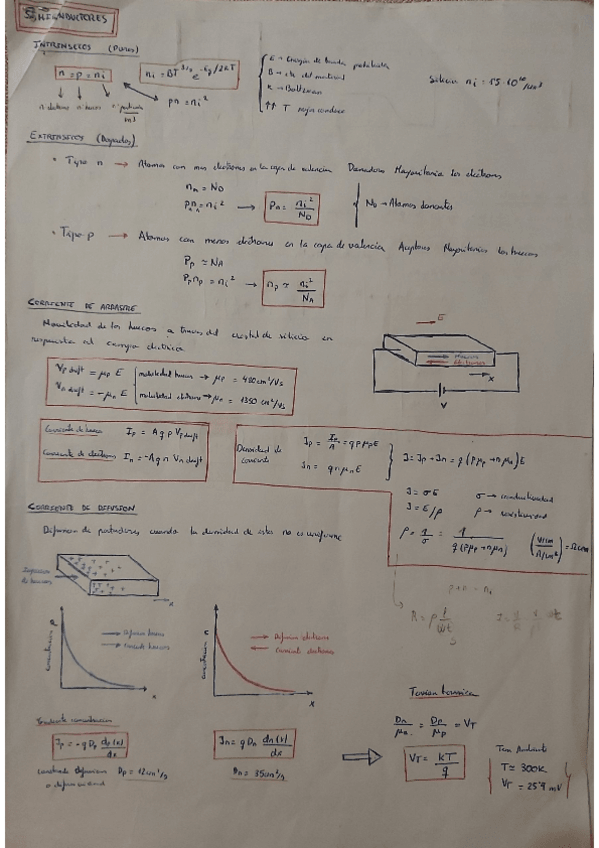 SEMICONDUCTORES
INTRINSECOS (Puros)
n = p = ni    ni = BT^3/2 e^-Eg/2KT
pn = ni²
B → cte del material
K → Boltzman
↑↑ T mejor conductor
Silicio ni = 1'5·10^10/cm³
nº electrones nº huecos nº particulas/m³
EXTRINSECOS (Dopados)
• Tipo n → Atomos con mas electrones en la capa de valencia Donadores Mayoritarios los electrones
nn ≈ ND
Pn nn = ni² → Pn = ni²/ND
ND → Atomos donantes
• Tipo p → Atomos con menos electrones en la capa de valencia Aceptores Mayoritarios los huecos
Pp ≃ NA
Pp np = ni² → np ≃ ni²/NA
CORRIENTE DE ARRASTRE
Movilidad de los huecos a traves del cristal de silicio en
respuesta al campo electrico
E
Huecos
Electrones
x
V
Vp drift = μp E  movilidad huecos → μp = 480 cm²/Vs
Vn drift = -μn E  movilidad electrones → μn = 1350 cm²/Vs
Corriente de huecos Ip = A q p Vp drift
Corriente de electrones In = -A q n Vn drift
Densidad de corriente
Jp = Ip/A = q p μp E
Jn = q n μn E
J = Jp + Jn = q (p μp + n μn) E
J = σE    σ → conductividad
J = E/ρ    ρ → resistividad
ρ = 1/σ = 1/q(p μp + n μn)    (V/cm / A/cm²) = Ω cm
CORRIENTE DE DIFUSION
Difusion de portadores cuando la densidad de estos no es uniforme
Inyeccion
de huecos
x
concentracion p
Difusion huecos
Corriente huecos
x
concentracion n
Difusion electrones
Corriente electrones
x
Pendiente concentracion
Jp = -q Dp dp(x)/dx
Constante difusion Dp = 12 cm²/s
o difusividad
Jn = q Dn dn(x)/dx
Dn = 35 cm²/s
Tension termica
Dn/μn = Dp/μp = VT
VT = KT/q
Tem Ambiente
T = 300K
VT = 25'9 mV